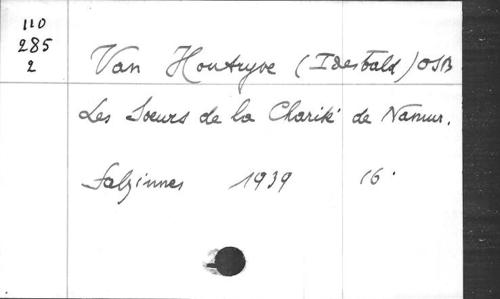 110
285
2
Van Houtryve (Idesbald) OSB
Les Soeurs de la Charité de Namur.
Salzinnes 1939 16°